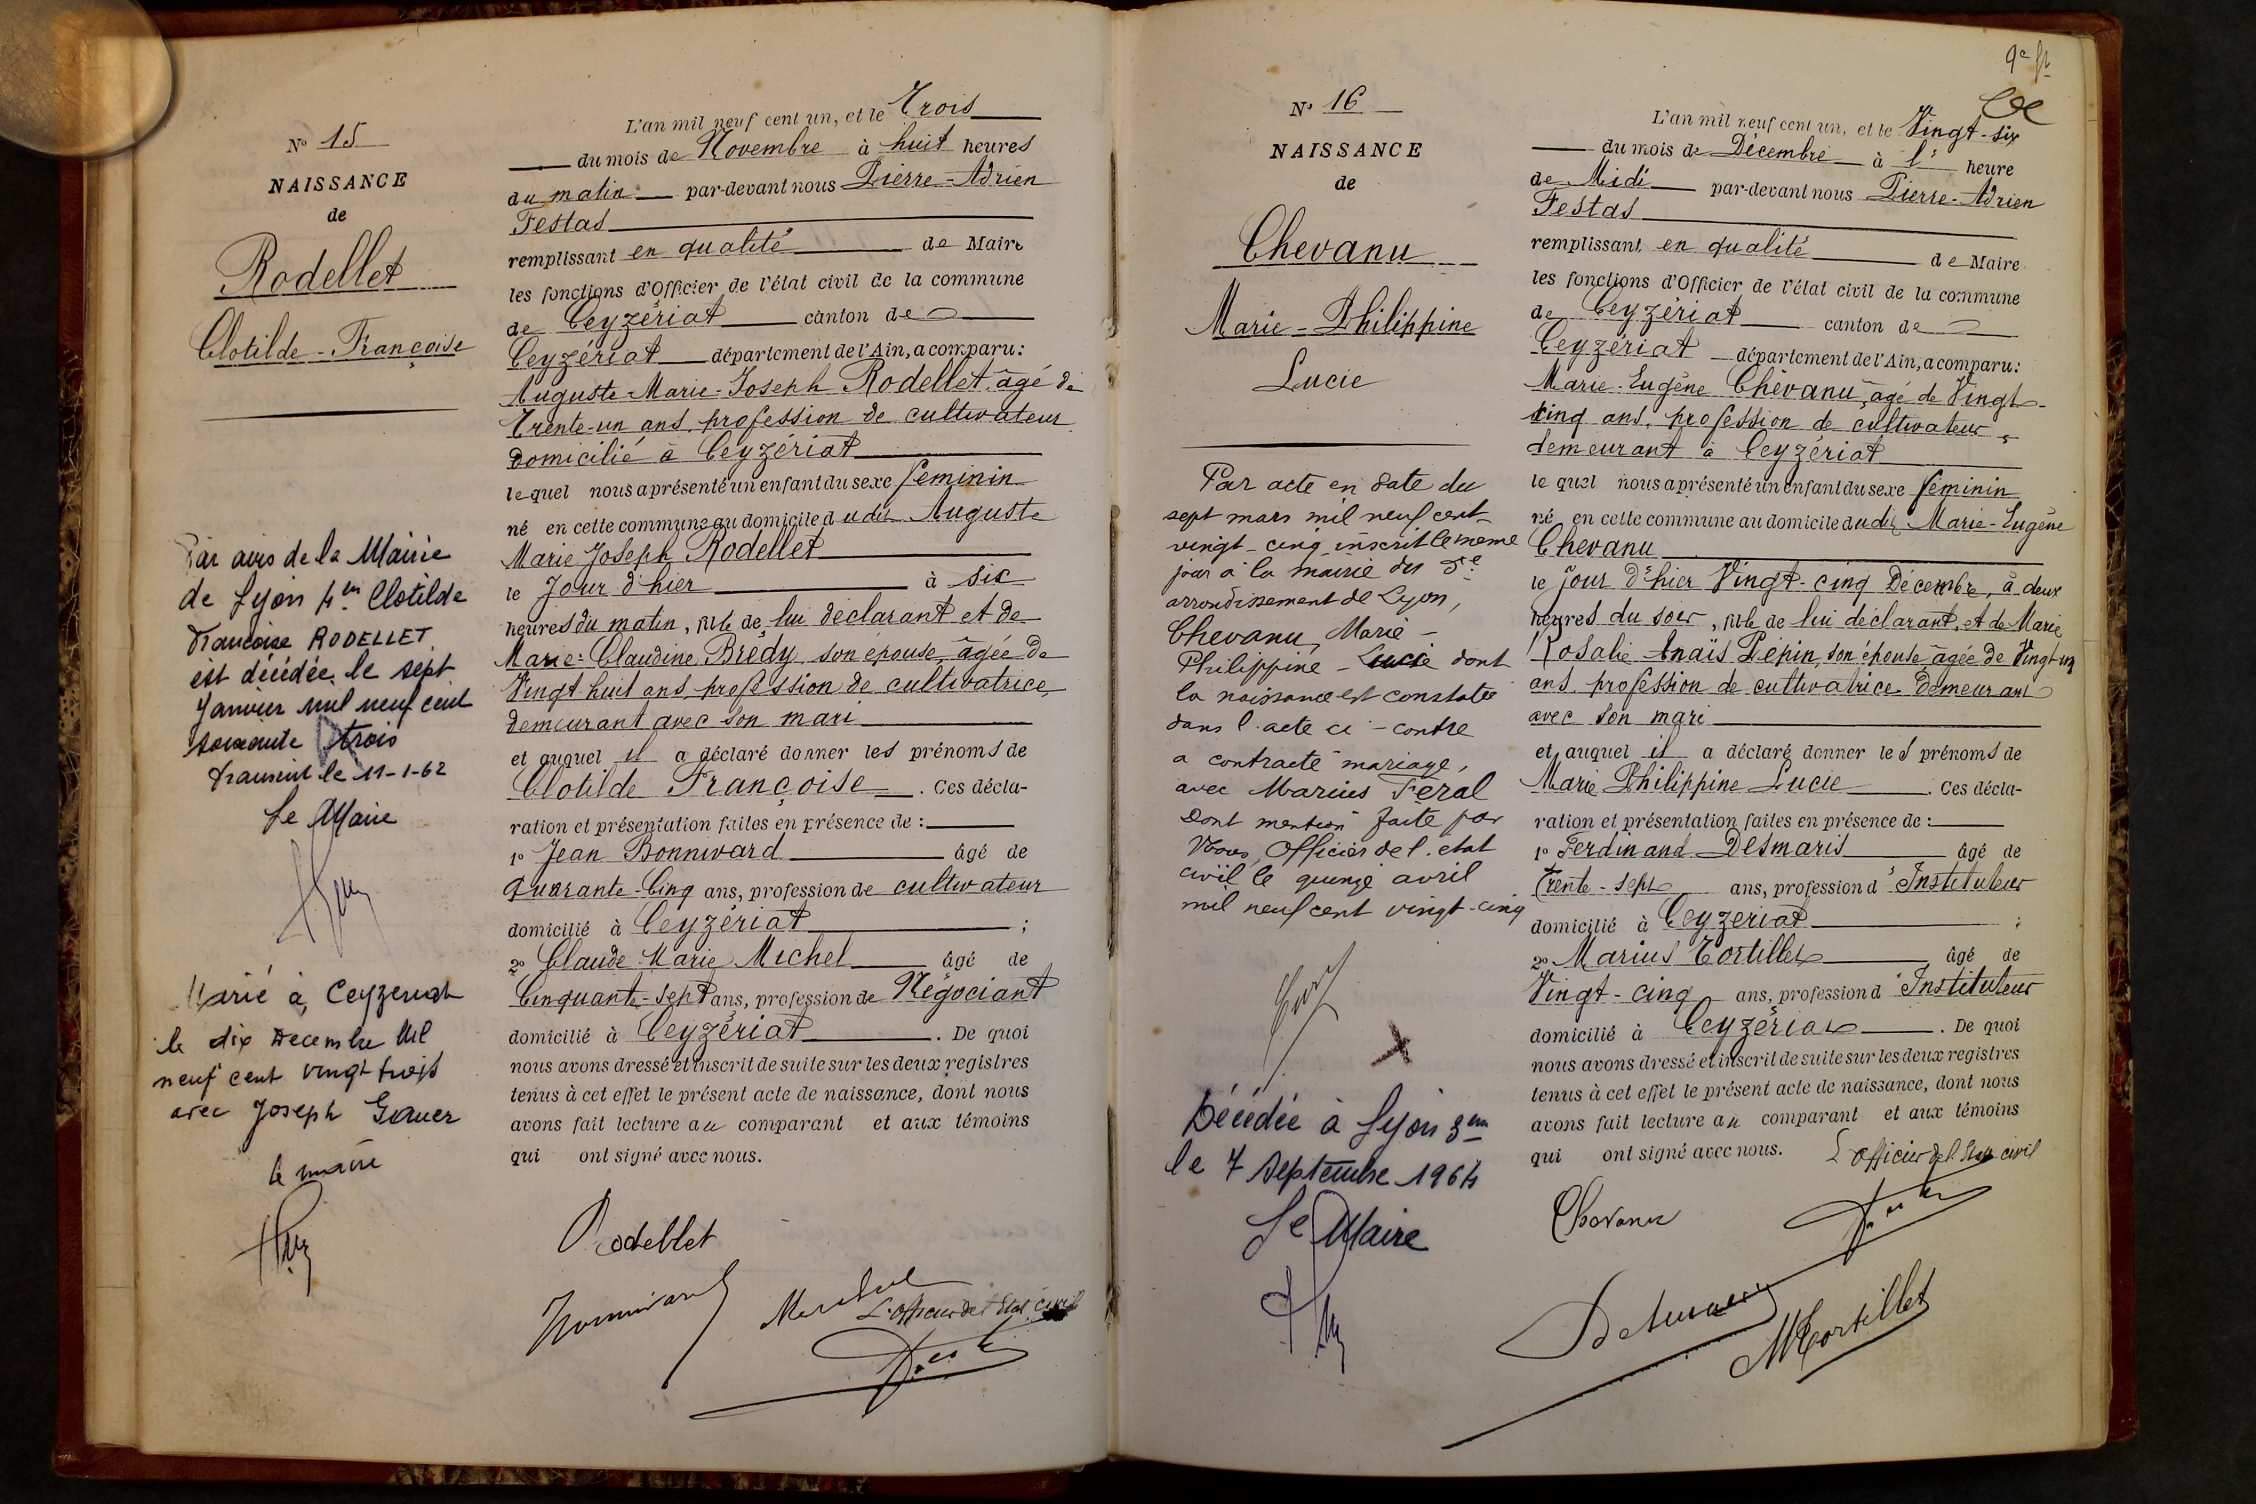 N° 15
NAISSANCE
de
Rodellet
Clotilde-Françoise
Par avis de la Mairie
de Lyon 4em Clotilde
Francoise RODELLET
est décédée le sept
Janvier mil neuf cent
soixante trois
transcrit le 11-1-62
Le Maire
Marié à Ceyzeriat
le dix Decembre Mil
neuf cent vingt trois
avec Joseph
le maire
L'an mil neuf cent un, et le Trois
du mois de Novembre à huit heures
du matin par-devant nous Pierre-Adrien
Festas
remplissant en qualité de Maire
les fonctions d'Officier de l'état civil de la commune
de Ceyzériat canton de
Ceyzériat département de l'Ain, a comparu :
Auguste-Marie-Joseph Rodellet, âgé de
Trente-un ans, profession de cultivateur
domicilié à Ceyzériat
lequel nous a présenté un enfant du sexe féminin
né en cette commune au domicile dudit Auguste
Marie Joseph Rodellet
le Jour d'hier à six
heures du matin, fille de lui déclarant et de
Marie-Claudine Bredy son épouse, âgée de
Vingt huit ans, profession de cultivatrice,
demeurant avec son mari
et auquel il a déclaré donner les prénoms de
Clotilde Françoise. Ces décla-
ration et présentation faites en présence de :
1° Jean Bonnivard âgé de
Quarante-Cinq ans, profession de cultivateur
domicilié à Ceyzériat ;
2° Claude Marie Michel âgé de
Cinquante-sept ans, profession de Négociant
domicilié à Ceyzériat. De quoi
nous avons dressé et inscrit de suite sur les deux registres
tenus à cet effet le présent acte de naissance, dont nous
avons fait lecture au comparant et aux témoins
qui ont signé avec nous.
Rodellet
Bonnivard Michel
L'officier de l'Etat civil
N° 16
NAISSANCE
de
Chevanu
Marie-Philippine
Lucie
Par acte en date du
sept mars mil neuf cent-
vingt-cinq inscrit le meme
jour à la mairie du 5e
arrondissement de Lyon,
Chevanu, Marie-
Philippine-Lucie dont
la naissance est constatée
dans l'acte ci-contre
a contracté mariage,
avec Marius Feral
Dont mention faite par
Nous, Officier de l'etat
civil le quinze avril
mil neuf cent vingt-cinq
X
Décédée à Lyon 3em
le 7 Septembre 1964
Le Maire
L'an mil neuf cent un, et le Vingt-six
du mois de Décembre à l' heure
de Midi par-devant nous Pierre-Adrien
Festas
remplissant en qualité de Maire
les fonctions d'Officier de l'état civil de la commune
de Ceyzériat canton de
Ceyzériat département de l'Ain, a comparu :
Marie-Eugène Chevanu, âgé de Vingt-
cinq ans, profession de cultivateur
demeurant à Ceyzériat
lequel nous a présenté un enfant du sexe féminin
né en cette commune au domicile dudit Marie-Eugène
Chevanu
le jour d'hier Vingt-cinq Décembre, à deux
heures du soir, fille de lui déclarant, et de Marie
Rosalie Anaïs Pépin, son épouse âgée de Vingt-un
ans, profession de cultivatrice demeurant
avec son mari
et auquel il a déclaré donner les prénoms de
Marie Philippine Lucie. Ces décla-
ration et présentation faites en présence de :
1° Ferdinand Desmaris âgé de
Trente-sept ans, profession d'Instituteur
domicilié à Ceyzériat ;
2° Marius Tortillet âgé de
Vingt-cinq ans, profession d'Instituteur
domicilié à Ceyzériat. De quoi
nous avons dressé et inscrit de suite sur les deux registres
tenus à cet effet le présent acte de naissance, dont nous
avons fait lecture au comparant et aux témoins
qui ont signé avec nous. L'officier de l'Etat civil
Chevanu
Desmaris
MTortillet